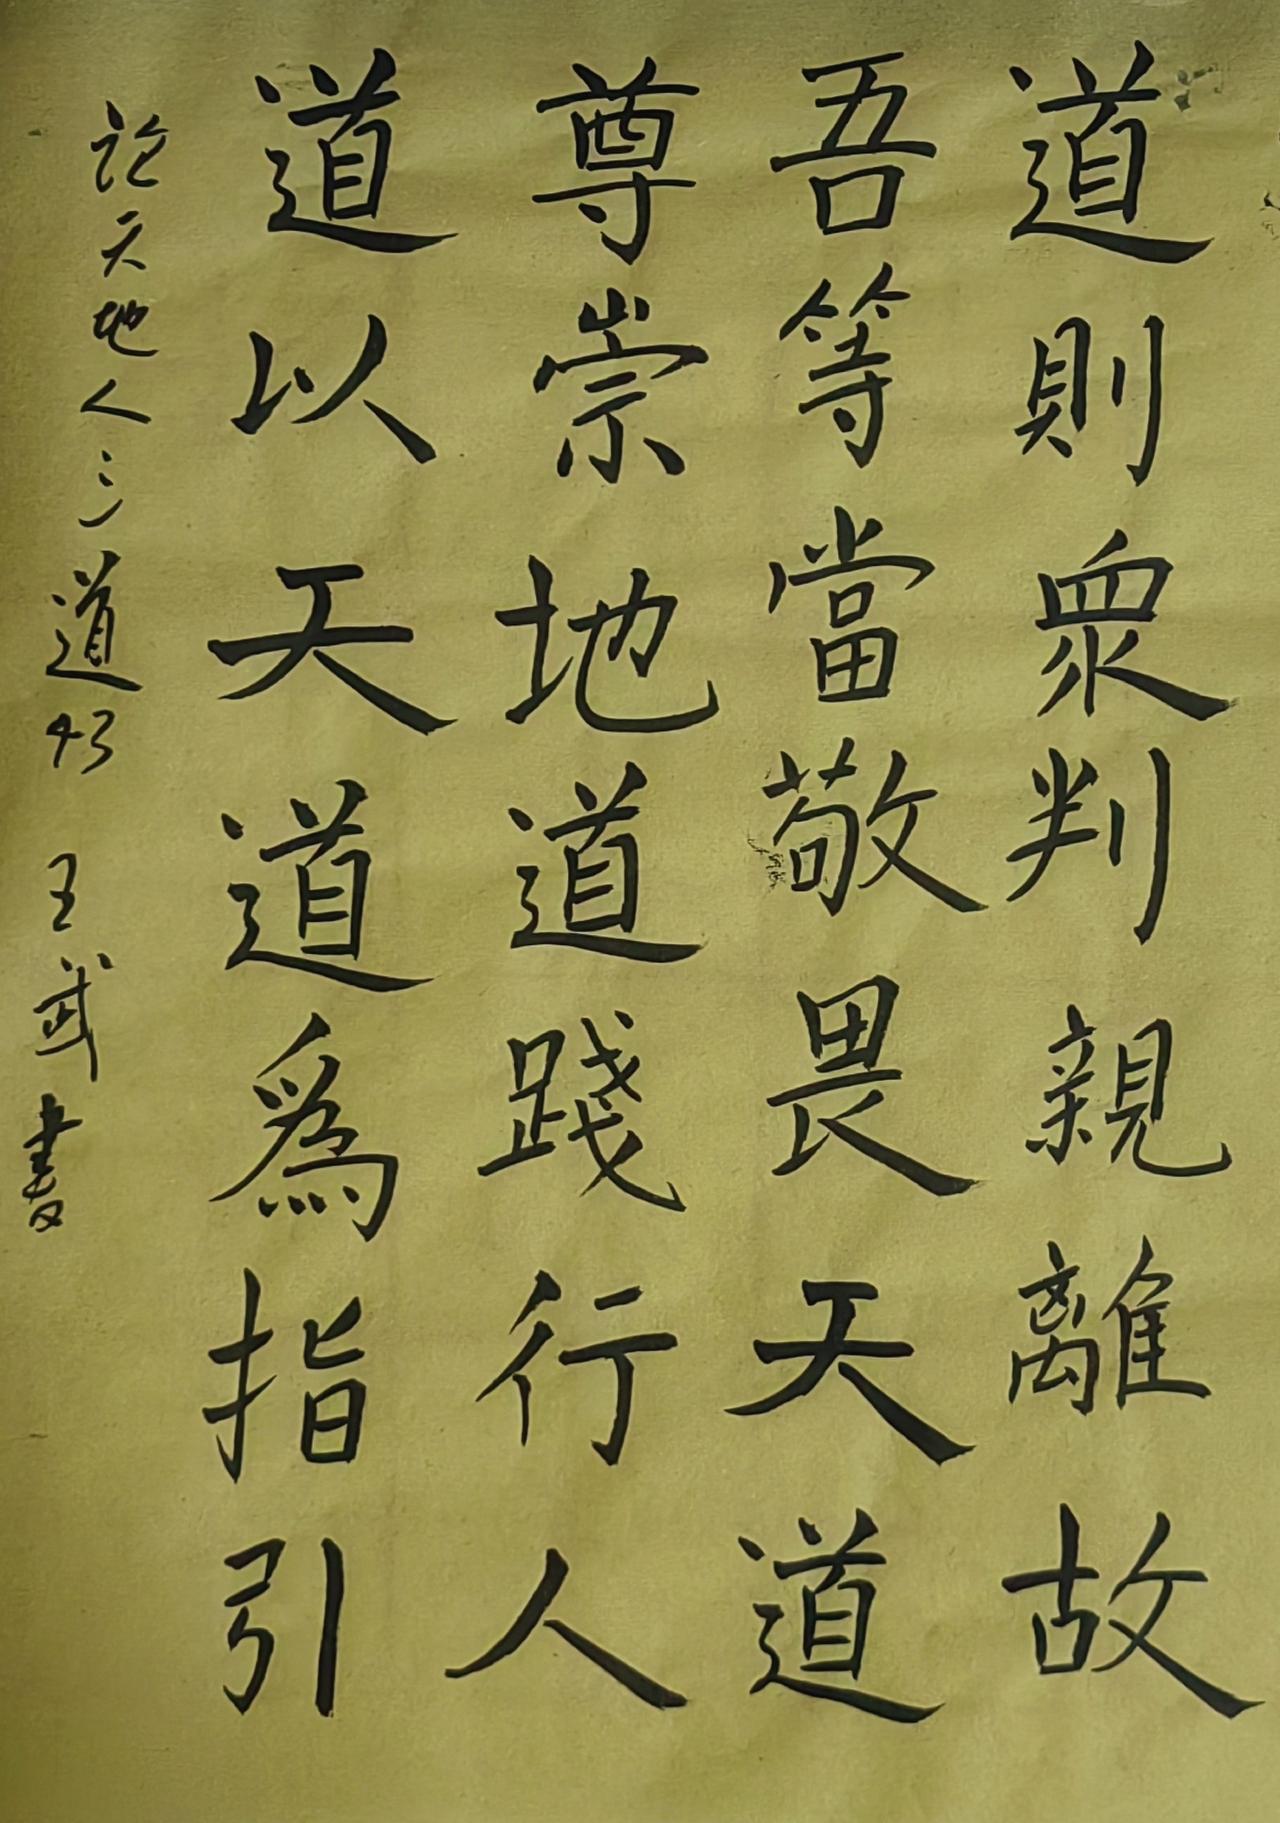 道則眾判親離故
吾等當敬畏天道
尊崇地道踐行人
道以天道為指引
論天地人三道43 王武書